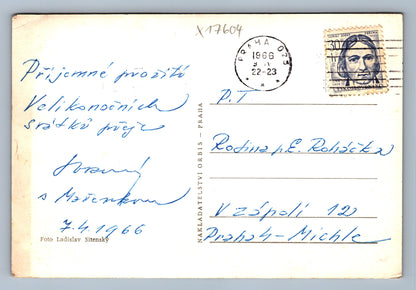 X17604
PRAHA 075
1966
22-23
30h
ČESKOSLOVENSKO
Příjemné prožití
Velikonočních
svátků přeje
s Mařenkou
7.4.1966
Foto Ladislav Sitenský
NAKLADATELSTVÍ ORBIS - PRAHA
P.T
Rodina p. E. Roháčka
V zápolí 12
Praha 4-Michle